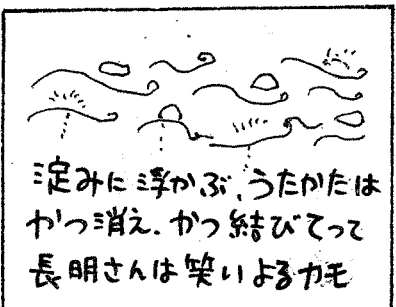 淀みに浮かぶ、うたかたは
かつ消え、かつ結びてって
長明さんは笑いよるカモ